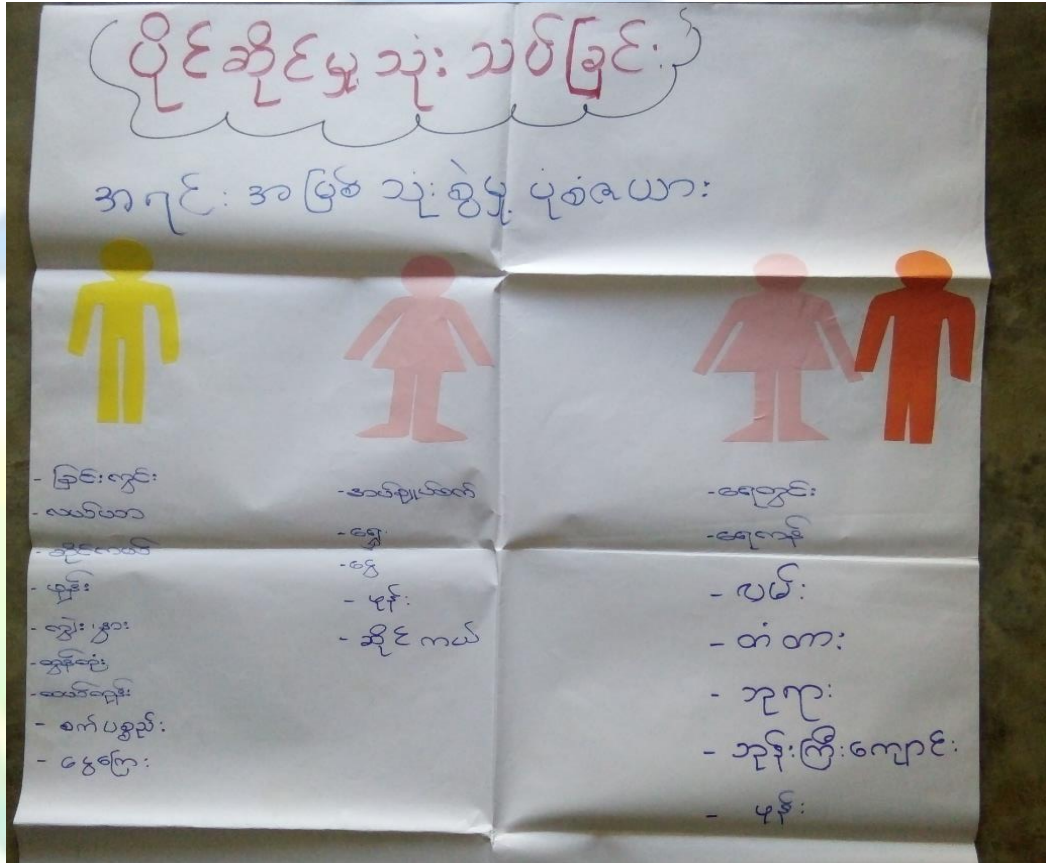 ပိုင်ဆိုင်မှု သုံးသပ်ခြင်း
အရင်းအမြစ် သုံးစွဲမှု ပုံစံဇယား
- ခြင်းကွင်း
- လယ်ယာ
- ဆိုင်ကယ်
- ဖုန်း
- ကျွဲ၊ နွား
- ထွန်တုံး
- စက်ပစ္စည်း
- ငွေကြေး
- အပ်ချုပ်စက်
- ရွှေ
- ငွေ
- ဖုန်း
- ဆိုင်ကယ်
- ရေတွင်း
- ရေကန်
- လမ်း
- တံတား
- ဘုရား
- ဘုန်းကြီးကျောင်း
- ဖုန်း